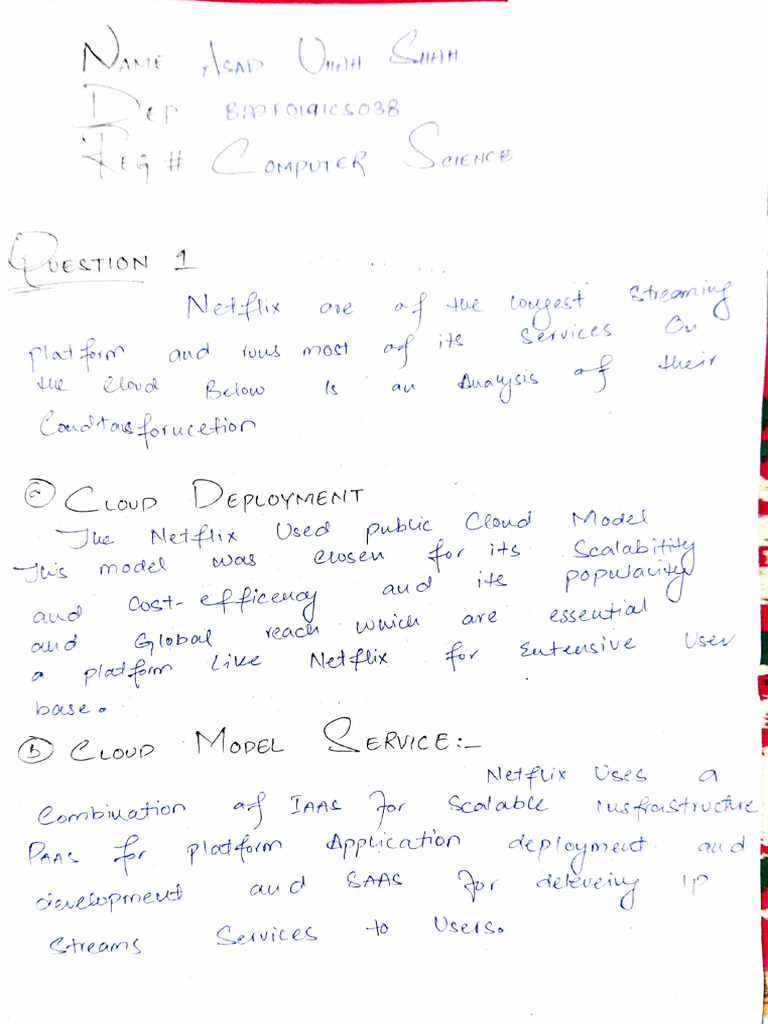 NAME ASAD Ullah SHAH
DEP
REG # COMPUTER SCIENCE
QUESTION 1
Netflix are of the longest streaming
platform and runs most of its services On
the Cloud Below Is an Analysis of their
@ CLOUD DEPLOYMENT
The Netflix Used public Cloud Model
This model was chosen for its Scalabitity
and Cost-efficency and its popularity
and Global reach which are essential
a platform Like Netflix for Entensive User
base.
(b) CLOUD MODEL SERVICE:-
Netflix Uses a
Combination of IAAS for Scalable
PAAS for platform Application deployment and
development and SAAS for IP
Streams Services to Users.